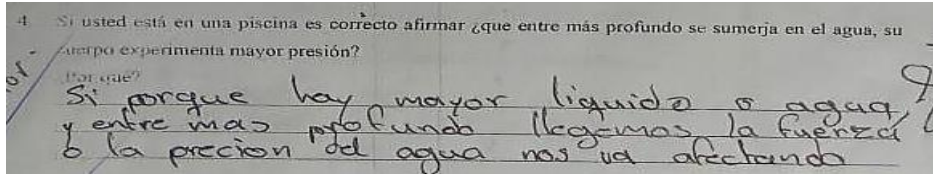 4 Si usted está en una piscina es correcto afirmar ¿que entre más profundo se sumerja en el agua, su
cuerpo experimenta mayor presión?
Por qué?
Si porque hay mayor liquido o agua
y entre mas profundo llegamos la fuerza
o la precion del agua nos va afectando